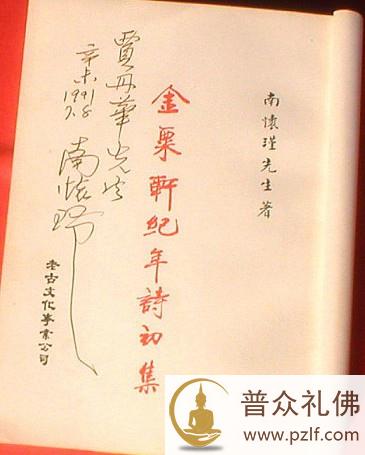 南懷瑾先生著
金粟軒紀年詩初集
賈丹華先生
辛未
1991
7.8
南懷瑾
老古文化事業公司
普众礼佛
www.pzlf.com